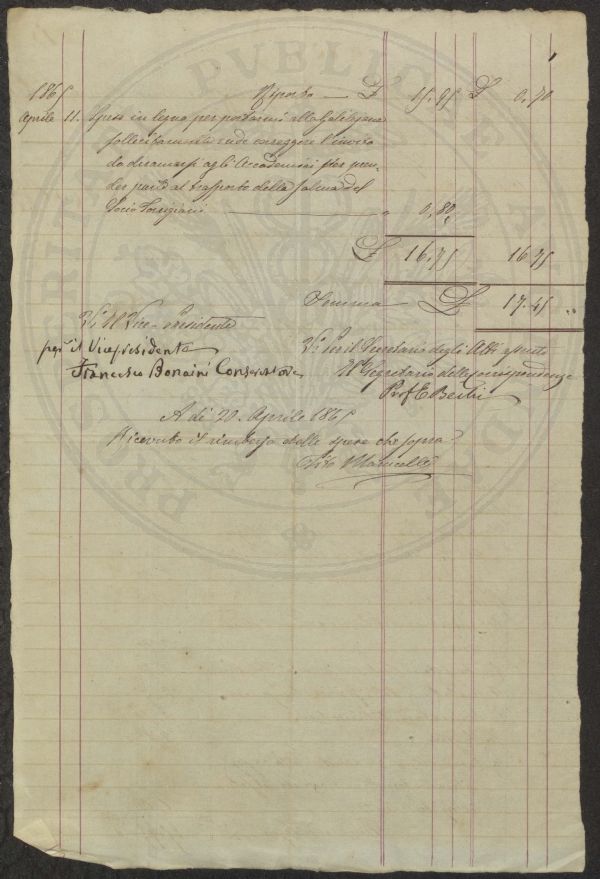 1865 Riporto — £ 15.95 £ 0,70
Aprile 11. Spesa in legno per portarmi alla
sollecitamente onde correggere l'invito
da diramarsi agli Accademici per pren-
der parte al trasporto della salma del
Socio " 0,80
£ 16.75 16.75
Somma £ 17.45 "
Vo Il Vice-Presidente
per il Vicepresidente
Francesco Bonaini Conservatore
Vo per il Segretario degli Atti
Il Segretario delle corrispondenze
Prof E. Bechi
A dì 20. Aprile 1865
Ricevuto il rimborso delle spese che sopra